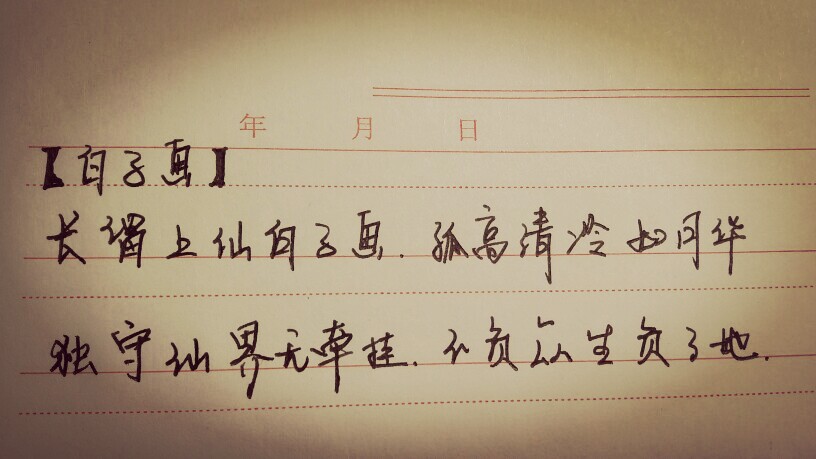 年 月 日
【白子画】
长留上仙白子画.孤高清冷如月华
独守仙界无牵挂.不负众生负了她.